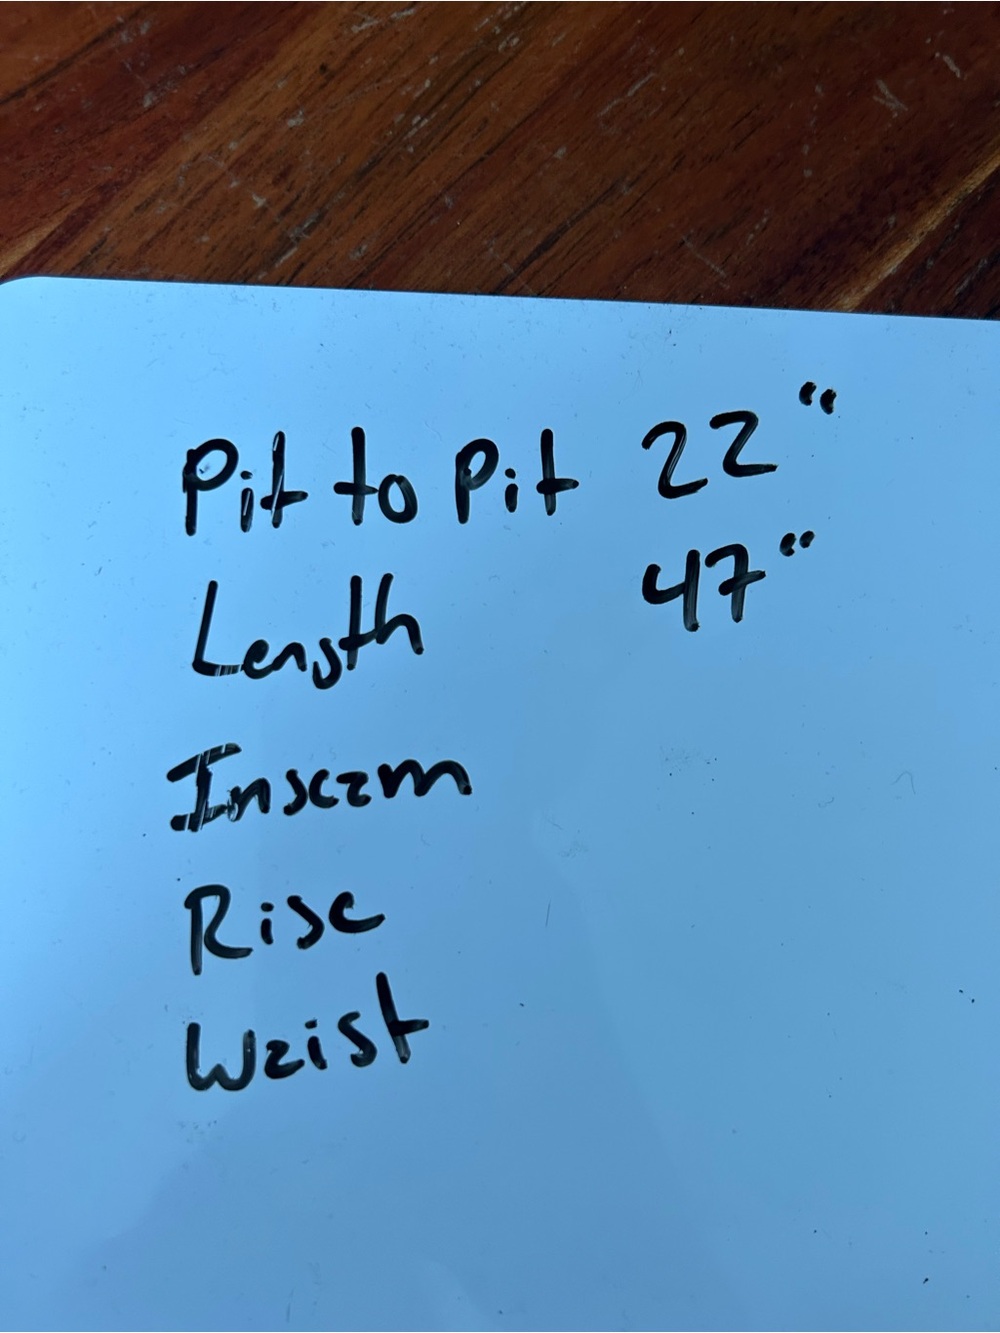 Pit to Pit 22"
Length 47"
Inseam
Rise
Waist